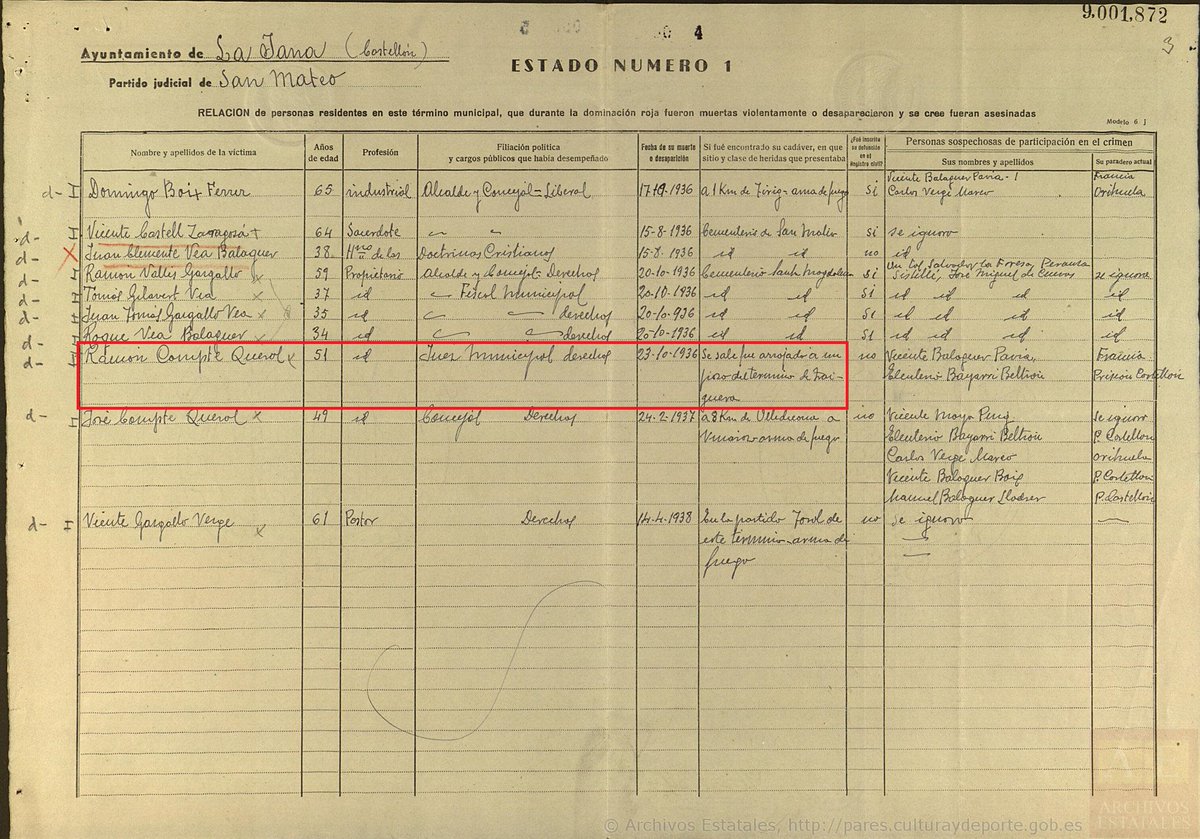 9.001.872
3
4
Ayuntamiento de La Jana (Castellón)
ESTADO NUMERO 1
Partido judicial de San Mateo
RELACION de personas residentes en este término municipal, que durante la dominación roja fueron muertas violentamente o desaparecieron y se cree fueran asesinadas
Modelo 6 j
Nombre y apellidos de la víctima
Años de edad
Profesión
Filiación política y cargos públicos que había desempeñado
Fecha de su muerte o desaparición
Si fué encontrado su cadáver, en que sitio y clase de heridas que presentaba
¿Fué inscrita su defunción en el Registro civil?
Personas sospechosas de participación en el crimen
Sus nombres y apellidos
Su paradero actual
d- I Domingo Boix Ferrer 65 industrial Alcalde y Concejal - Liberal 17-10-1936 a 1 Km de Tirig - arma de fuego Si Vicente Balaguer Pavia - 1 Francia
Carlos Vergé Marco Orihuela
d- I Vicente Castell Zaragosá + 64 Sacerdote 15-8-1936 Cementerio de San Mateo Si se ignora
d- X Juan Clemente Vea Balaguer 38 Hno de las Doctrinas Cristianas 15-8-1936 id id no id
d- I Ramón Vallés Gargallo x 59 Propietario Alcalde y Concejal - Derechas 20-10-1936 Cementerio Santa Magdalena Si Un tal Salvador La Foresa, Peraula
José Miguel de Cuevas se ignora
d- I Tomás Gilavert Vea x 37 id Fiscal Municipal 20-10-1936 id id Si id id id id
d- I Juan Tomás Gargallo Vea x 35 id derechas 20-10-1936 id id Si id id id id
d- I Roque Vea Balaguer x 34 id derechas 20-10-1936 id id Si id id id id
d- I Ramón Compte Querol x 51 id Juez Municipal derechas 23-10-1936 Se sabe fue arrojado a un no Vicente Balaguer Pavia Francia
pozo del termino de Trai- Eleuterio Bayarri Beltrán Prisión Castellón
guera
d- I José Compte Querol x 49 id Concejal Derechas 24-2-1937 a 8 Km de Ulldecona a no Vicente Moya Puig Se ignora
Vinaroz - arma de fuego Eleuterio Bayarri Beltrán P. Castellón
Carlos Vergé Marco Orihuela
Vicente Balaguer Boix P. Castellón
Manuel Balaguer Llacer P. Castellón
d- I Vicente Gargallo Vergé x 61 Pastor Derechas 14-4-1938 En la partida de no se ignora
este termino - arma de
fuego
AE
ARCHIVOS ESTATALES
© Archivos Estatales, http://pares.culturaydeporte.gob.es